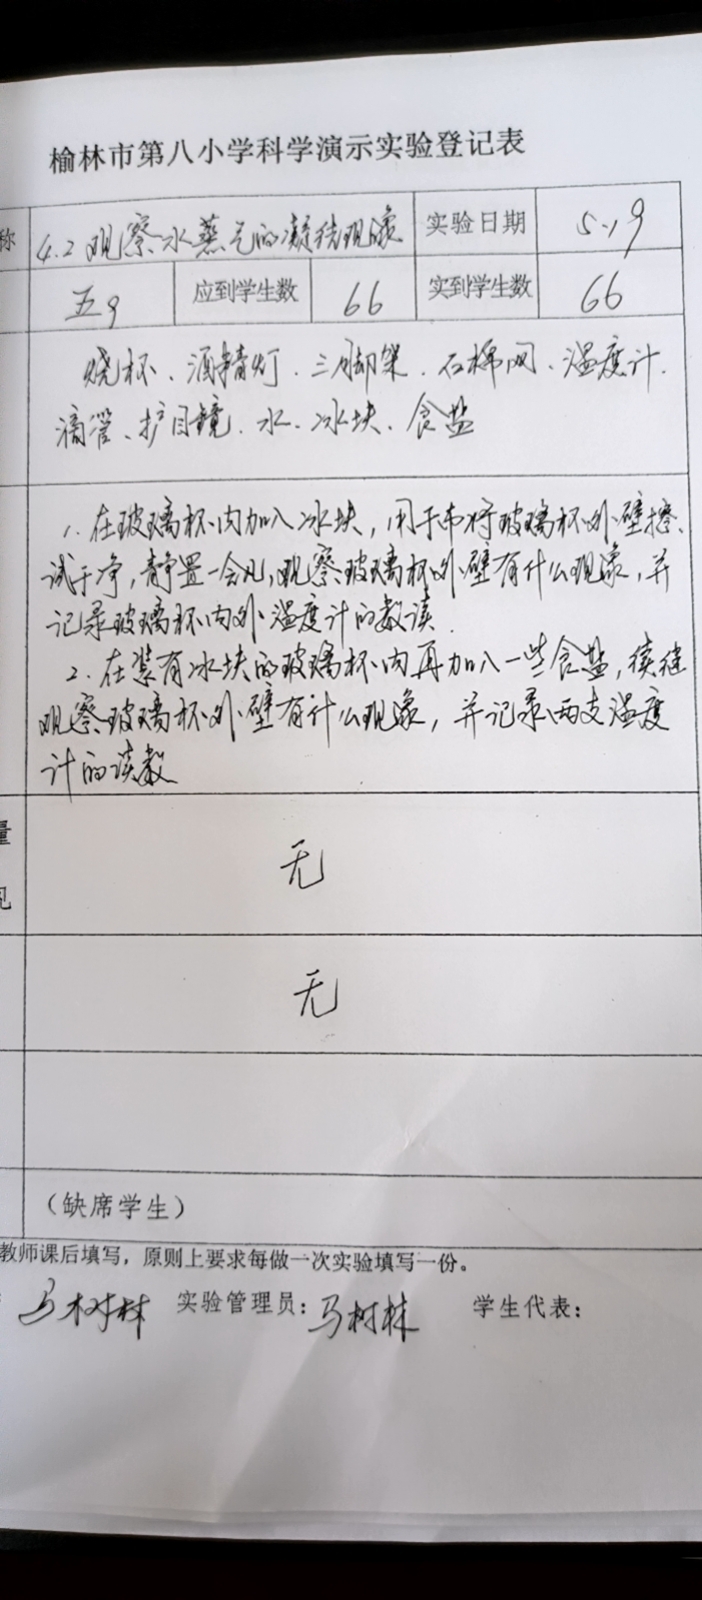 榆林市第八小学科学演示实验登记表
称 4.2观察水蒸气的凝结现象 实验日期 5.19
五9 应到学生数 66 实到学生数 66
烧杯、酒精灯、三脚架、石棉网、温度计、
滴管、护目镜、水、冰块、食盐
1.在玻璃杯内加入冰块,用干布将玻璃杯外壁擦
试干净,静置一会儿,观察玻璃杯外壁有什么现象,并
记录玻璃杯内外温度计的数读.
2.在装有冰块的玻璃杯内再加入一些食盐,续继
观察玻璃杯外壁有什么现象,并记录两支温度
计的读数
量
无
见
无
(缺席学生)
教师课后填写,原则上要求每做一次实验填写一份。
马树林 实验管理员:马树林 学生代表: